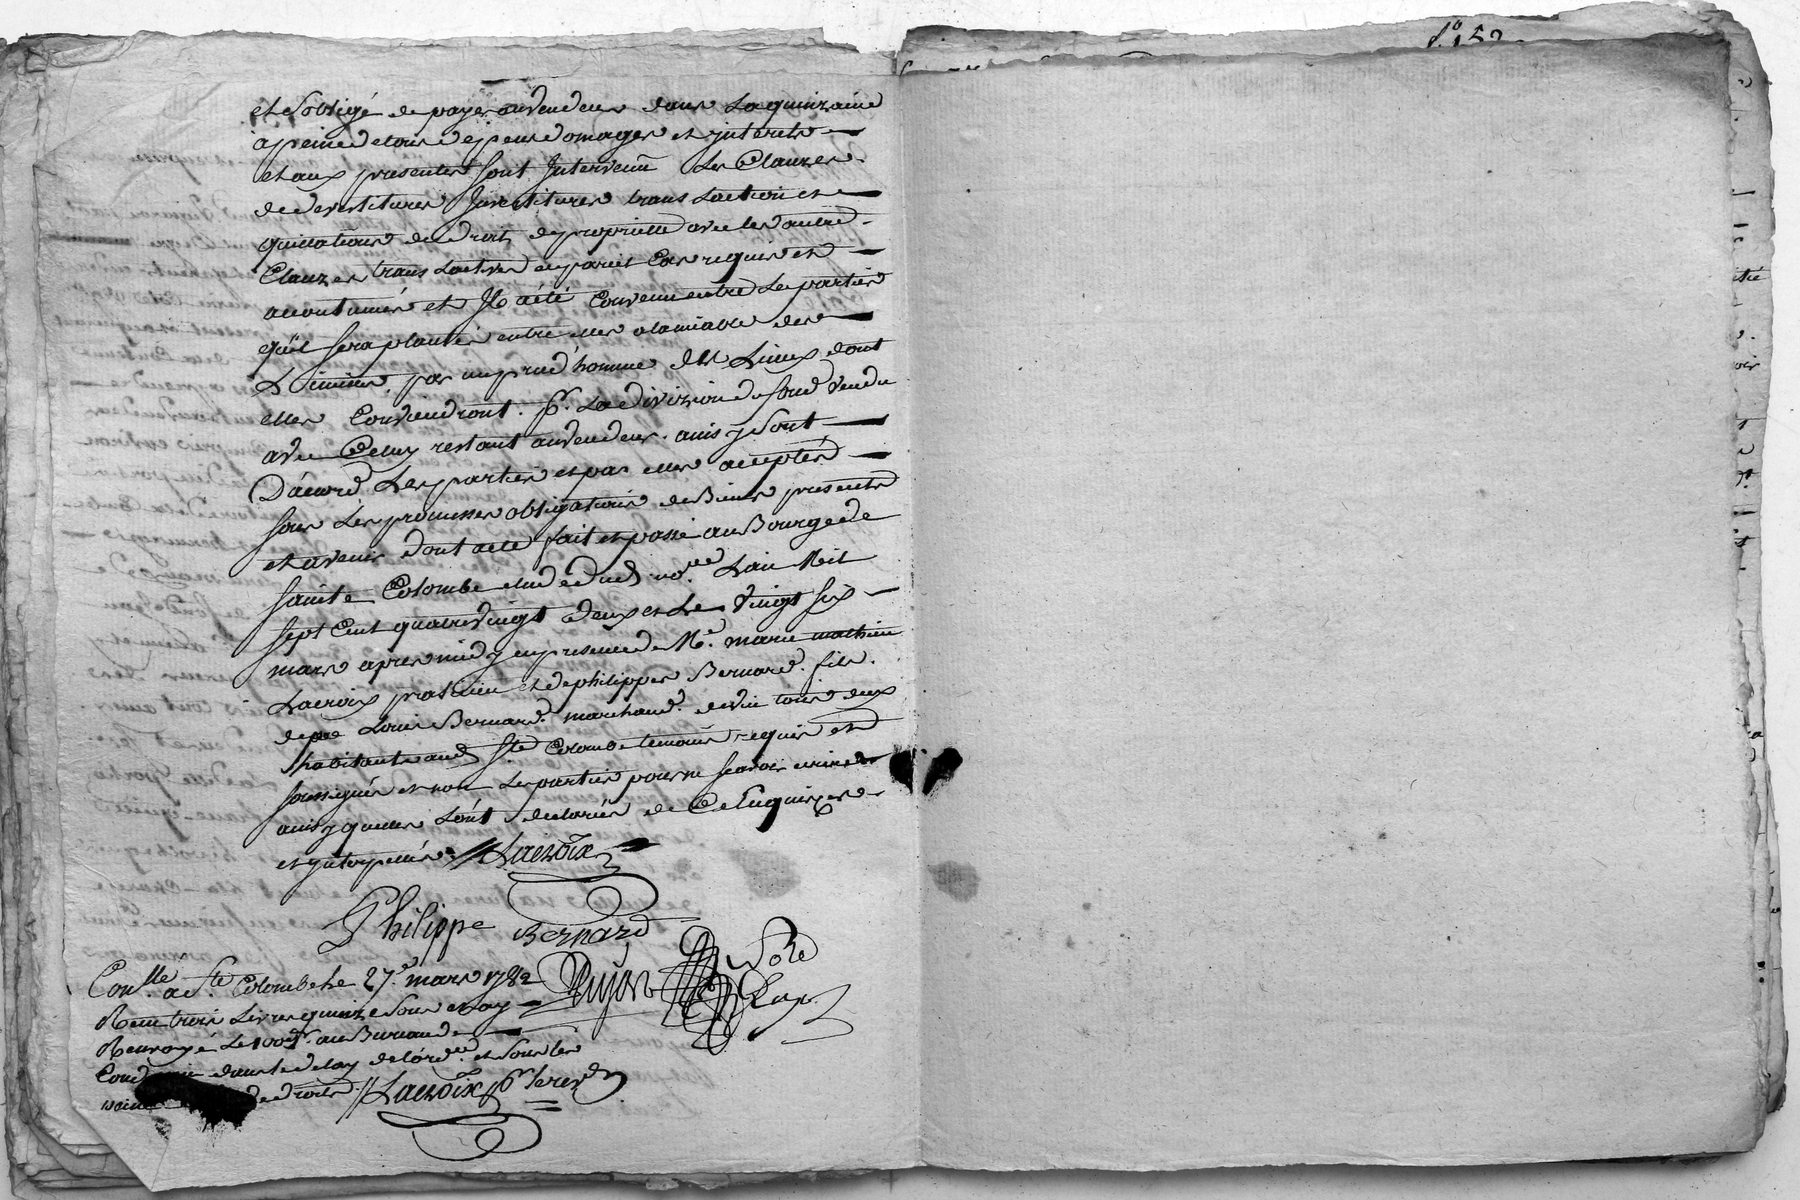 et s'obligé de payer au vendeur dans la quinzaine
a peine de tous depens domages et jnterets
et aux presentes sont Jntervenu les Clauzes
de devestitures Jnvestitures translaction et
quittations de droit de proprietté avec les autres
Clauzes translactives en pareil Cas requis et
acoutumés et Jl a été Convenu entre les parties
qu'il sera planté entre elles a lamiable des
Limites par un prud'homme des Lieux dont
elles Conviendront. pr. La division du fond vendu
avec Celuy restant au vendeur. ainsy sont
D'acord Les parties et par elles acceptés
sous les promesses obligations de Biens presents
et avenir dont acte fait et passé au Bourg de
sainte Colombe etude du nore. L'an Mil
sept Cent quatre vingt deux et Le vingt six
mars apres midy en presence de Me. marie mathieu
Lacroix praticien et de philippes Bernard. fils.
de Louis Bernard. marchand. de vin tous deux
habitants aud Ste Colombe temoins requis et
soussignés et non Les parties pour ne scavoir ecrire
ainsy quelles L'ont declarés de Ce Enquises
et jnterpellés // Lacroix
Philippe Bernard
Conllé. a Ste. Colombe le 27e. mars 1782
Reçu trois Livres quinze sous et ay
Renvoyé Le 100e. au Bureau de
dans le delay de l'ordce. et sous les
de droits // Lacroix